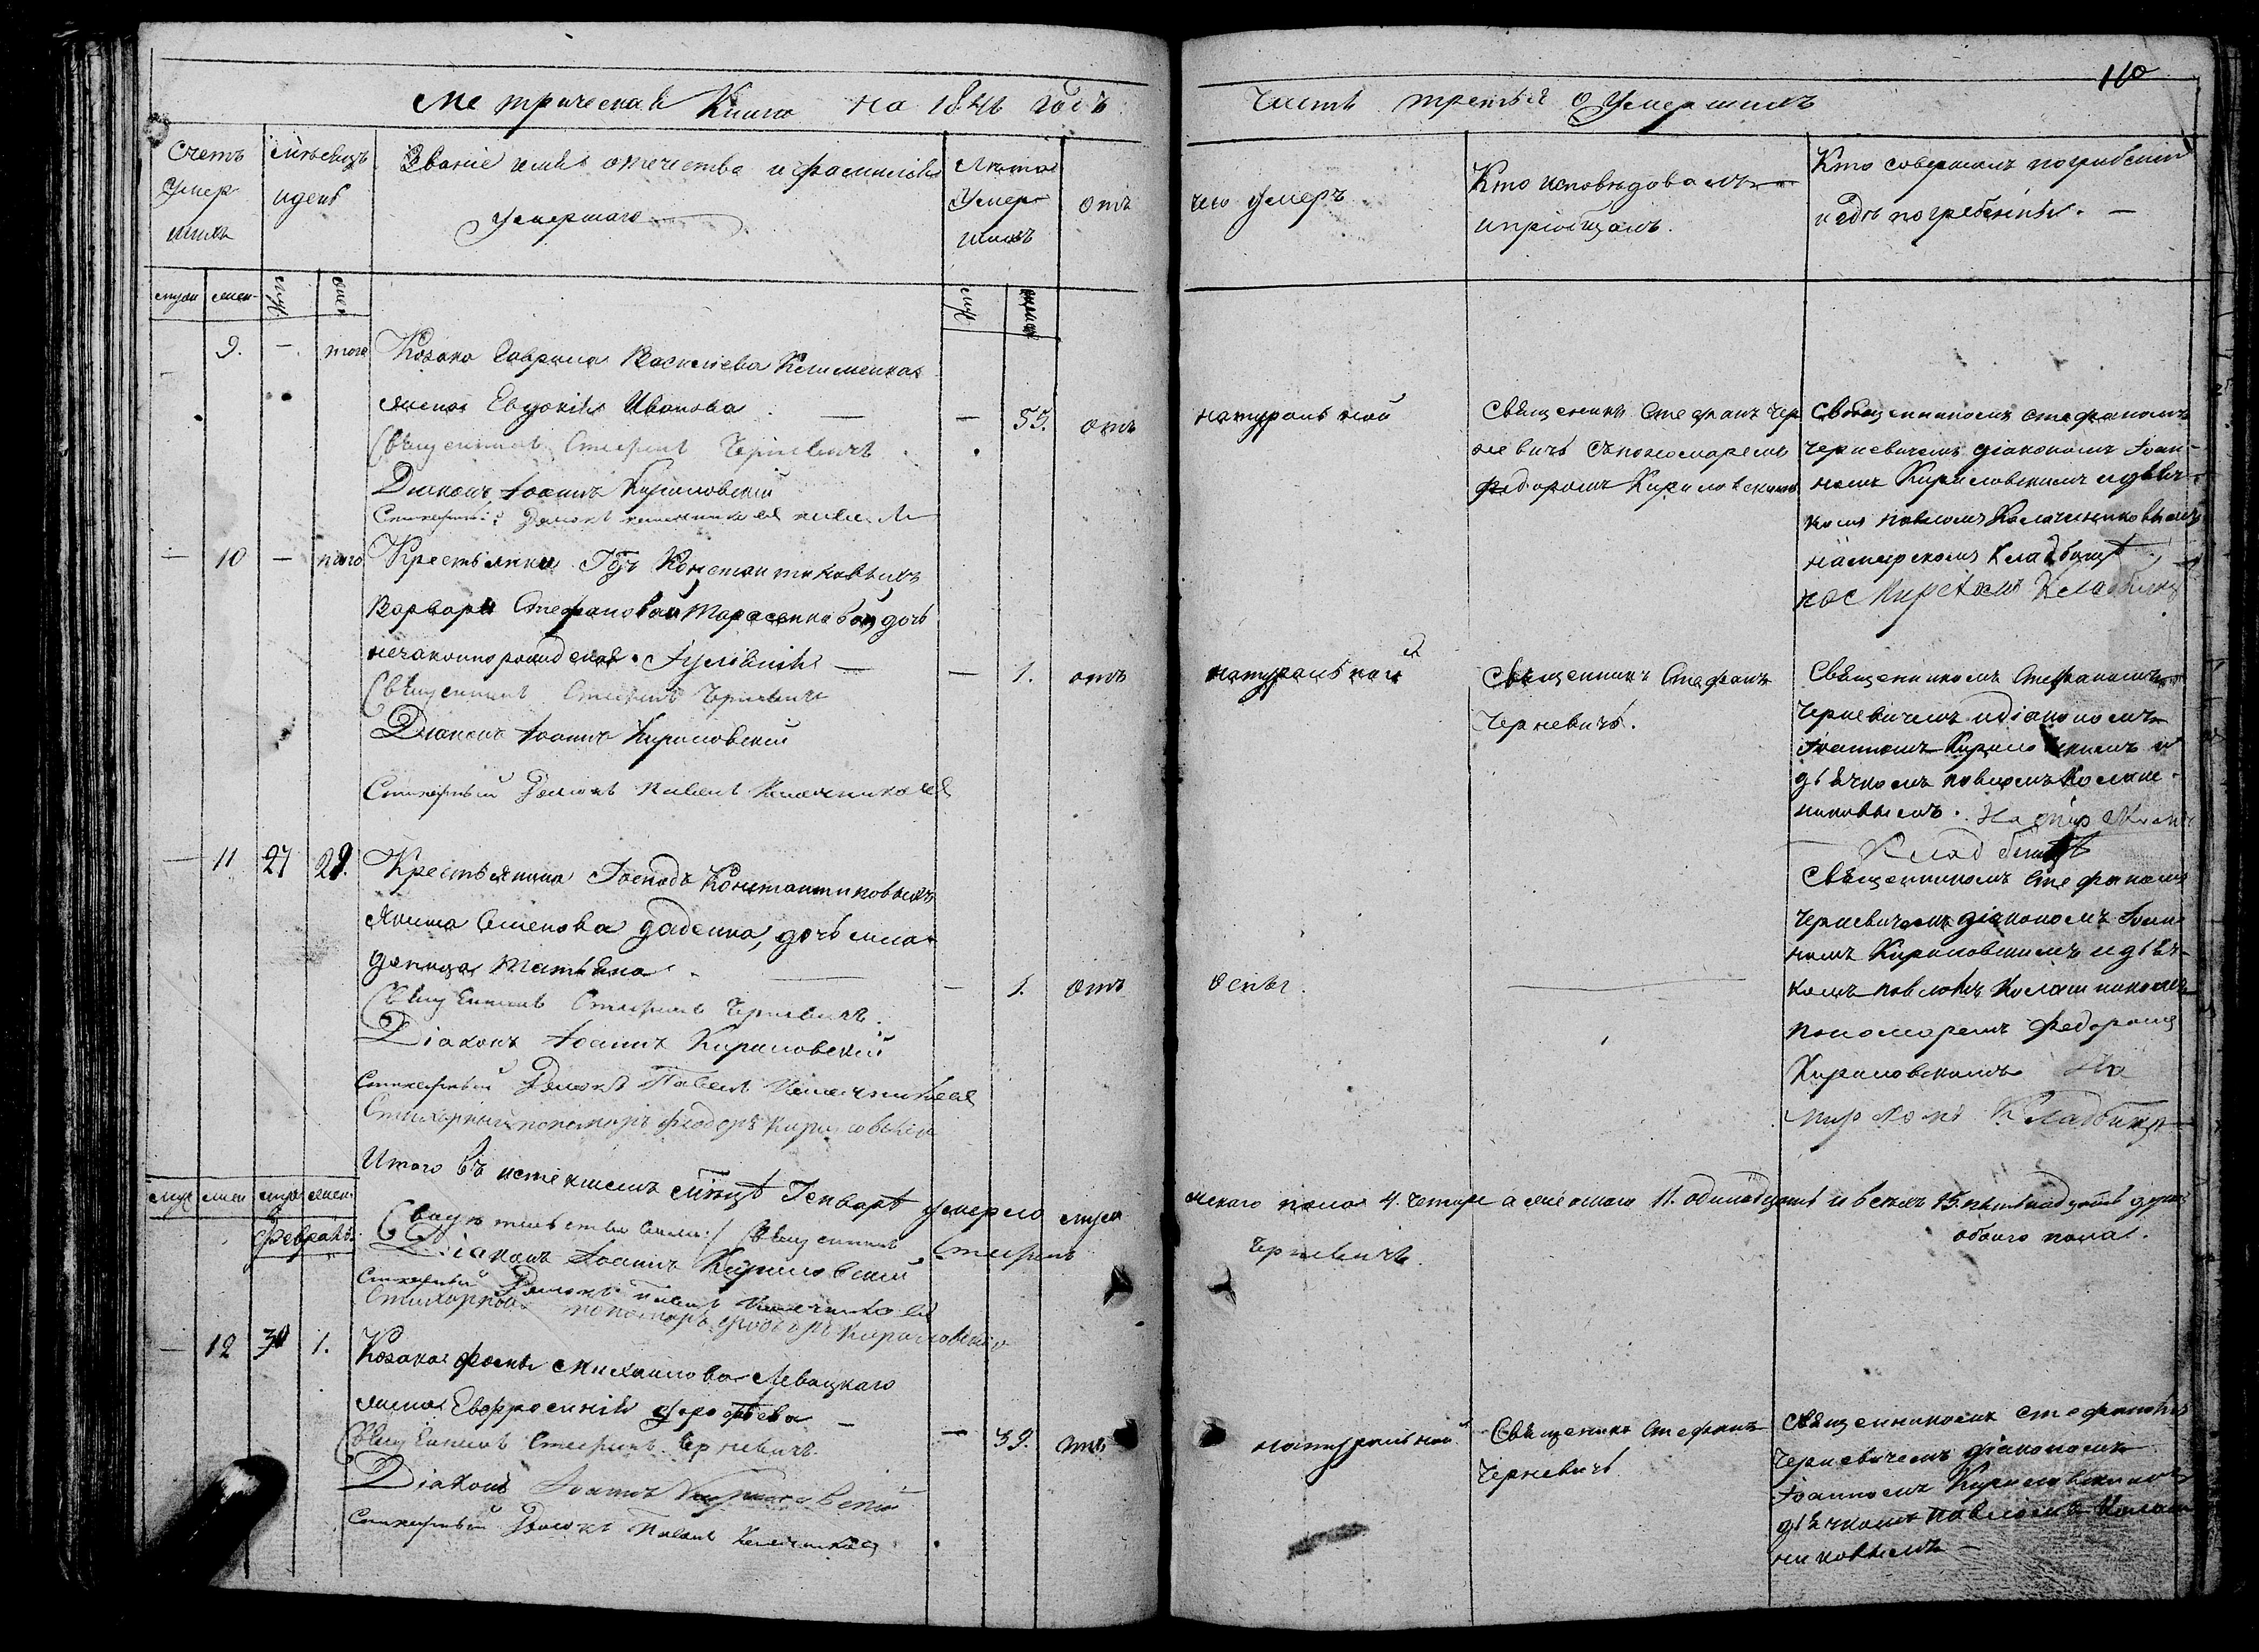 110
Метрическая Книга на 184 годъ
Часть третья о умершихъ
Счетъ умер шихъ
Мѣсяцъ и день
Званіе имя отчество и фамилія
умершаго
Лѣта умер шихъ
отъ
чего умеръ
Кто исповѣдовалъ
и пріобщалъ.
Кто совершалъ погребеніе
и гдѣ погребены. —
муж жен муж жен
муж женс
9. — того Козака Гаврила Василіева
жена Евдокія Иванова — — 55. отъ
натуральной
Священникъ Стефанъ Чер
невичъ съ пономаремъ
Федоромъ Кириловскимъ
Священникомъ Стефаномъ
Черневичемъ діакономъ Іоан-
номъ Кириловскимъ и дьяч-
комъ Павломъ
на мирскомъ кладбищѣ
на мирскомъ Кладбищѣ
Священникъ Стефанъ Черневичъ
Діаконъ Іоаннъ Кириловскій
Стихарный Дьячокъ
— 10 — того Крестьянки Гдъ Константиновыхъ
Варвары Стефановой Тарасенковой, дочь
незаконнорожденая — — 1. отъ
натуральной
Священникъ Стефанъ
Черневичъ.
Священникомъ Стефаномъ
Черневичемъ и діакономъ
Іоанномъ Кириловскимъ и
дьячкомъ Павломъ Колаш-
никовымъ. На мирскомъ
Кладбищѣ
Священникъ Стефанъ Черневичъ
Діаконъ Іоаннъ Кириловскій
Стихарный Дьячокъ Павелъ
— 11 27 29. Крестьянина Господъ Константиновыхъ
Якима Семенова Даденка, дочь мла-
деница Татьяна — — 1. отъ
оспы.
Священникомъ Стефаномъ
Черневичемъ діакономъ Іоан-
номъ Кириловскимъ и дьяч-
комъ Павломъ Колашниковымъ
пономаремъ Федоромъ
Кириловскимъ На
мирскомъ Кладбищѣ
Священникъ Стефанъ Черневичъ.
Діаконъ Іоаннъ Кириловскій
Стихарный Дьячокъ Павелъ
Стихарный пономаръ Феодоръ Кириловскій
Итого въ истекшемъ мѣсяцѣ Генварѣ умерло муж
ескаго пола 4. четыре а женскаго 11. одинадцать и всехъ 15. пятьнадцать душъ
обоего пола.
муж жен муж жен
Февраль
Свидетельствовали: Священникъ Стефанъ
Черневичъ.
Діаконъ Іоаннъ Кириловскій
Стихарный Дьячокъ Павелъ
Стихарный пономаръ Феодоръ Кириловскій
— 12 30 1. Козака Фомы Михаилова Левицкаго
жена Евфросинія Дорофѣева —
— 39. отъ
натуральной
Священникъ Стефанъ
Черневичъ
Священникомъ Стефаномъ
Черневичемъ діакономъ
Іоанномъ Кириловскимъ
дьячкомъ Павломъ Колаш
никовымъ —
Священникъ Стефанъ Черневичъ
Діаконъ Іоаннъ Кириловскій
Стихарный Дьячокъ Павелъ